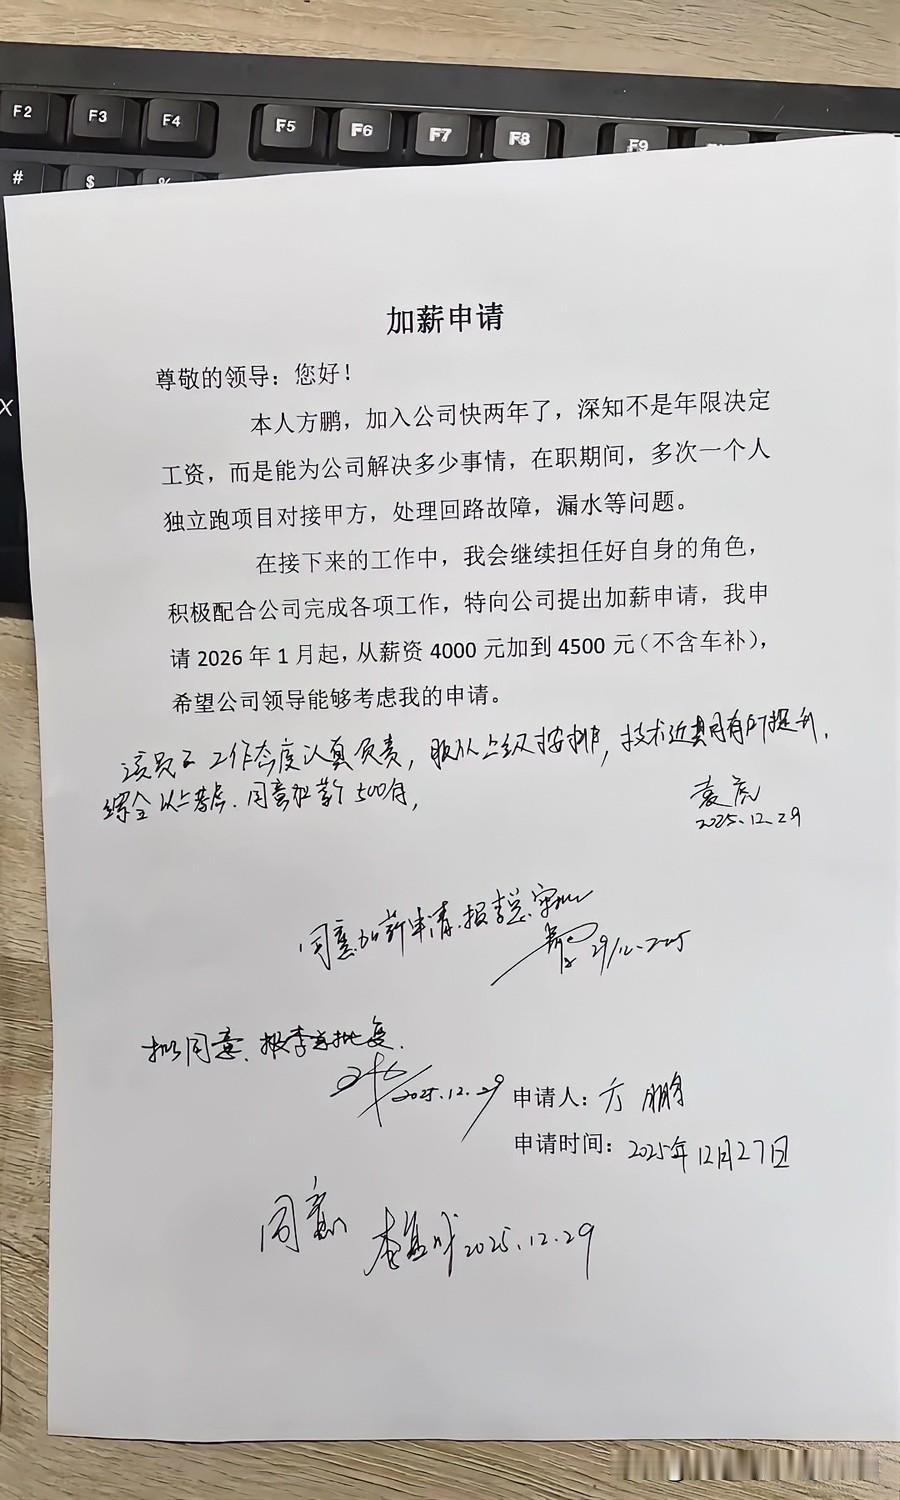 F2 F3 F4 F5 F6 F7 F8 F9
# $ %
X
加薪申请
尊敬的领导：您好！
本人方鹏，加入公司快两年了，深知不是年限决定
工资，而是能为公司解决多少事情，在职期间，多次一个人
独立跑项目对接甲方，处理回路故障，漏水等问题。
在接下来的工作中，我会继续担任好自身的角色，
积极配合公司完成各项工作，特向公司提出加薪申请，我申
请 2026 年 1 月起，从薪资 4000 元加到 4500 元（不含车补），
希望公司领导能够考虑我的申请。
该员工工作态度认真负责，服从上级安排，技术近期有所提升，
综合以上考虑，同意加薪500/月，
袁虎
2025.12.29
同意加薪申请，报李总审批
29/12-2025
拟同意，报李总批复。
2025.12.29
申请人：方鹏
申请时间：2025年12月27日
同意 李 2025.12.29